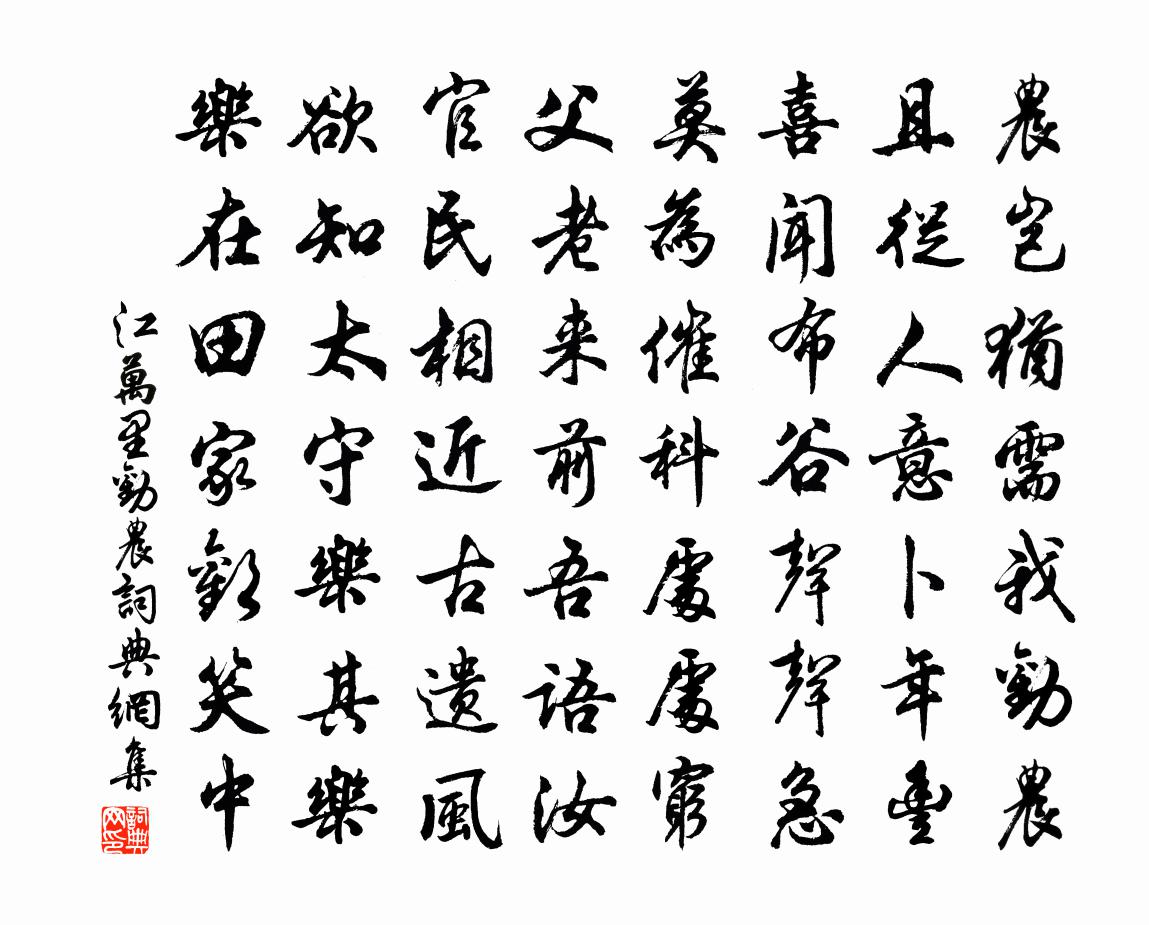 農豈猶需我勸農
且從人意卜年豐
喜聞布谷聲聲急
莫為催科處處窮
父老来前吾語汝
官民相近古遺風
欲知太守樂其樂
樂在田家歡笑中
江萬里勸農詞典網集
詞典網印